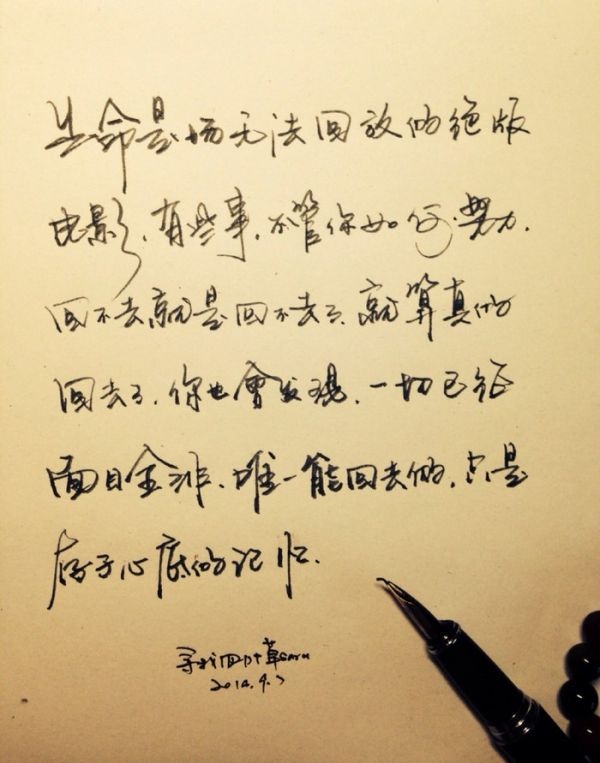 生命是场无法回放的绝版
电影，有些事，不管你如何努力，
回不去就是回不去了，就算真的
回去了，你也會发现，一切已经
面目全非，唯一能回去的，只是
存于心底的记忆．
寻找四叶草
2014.9.7